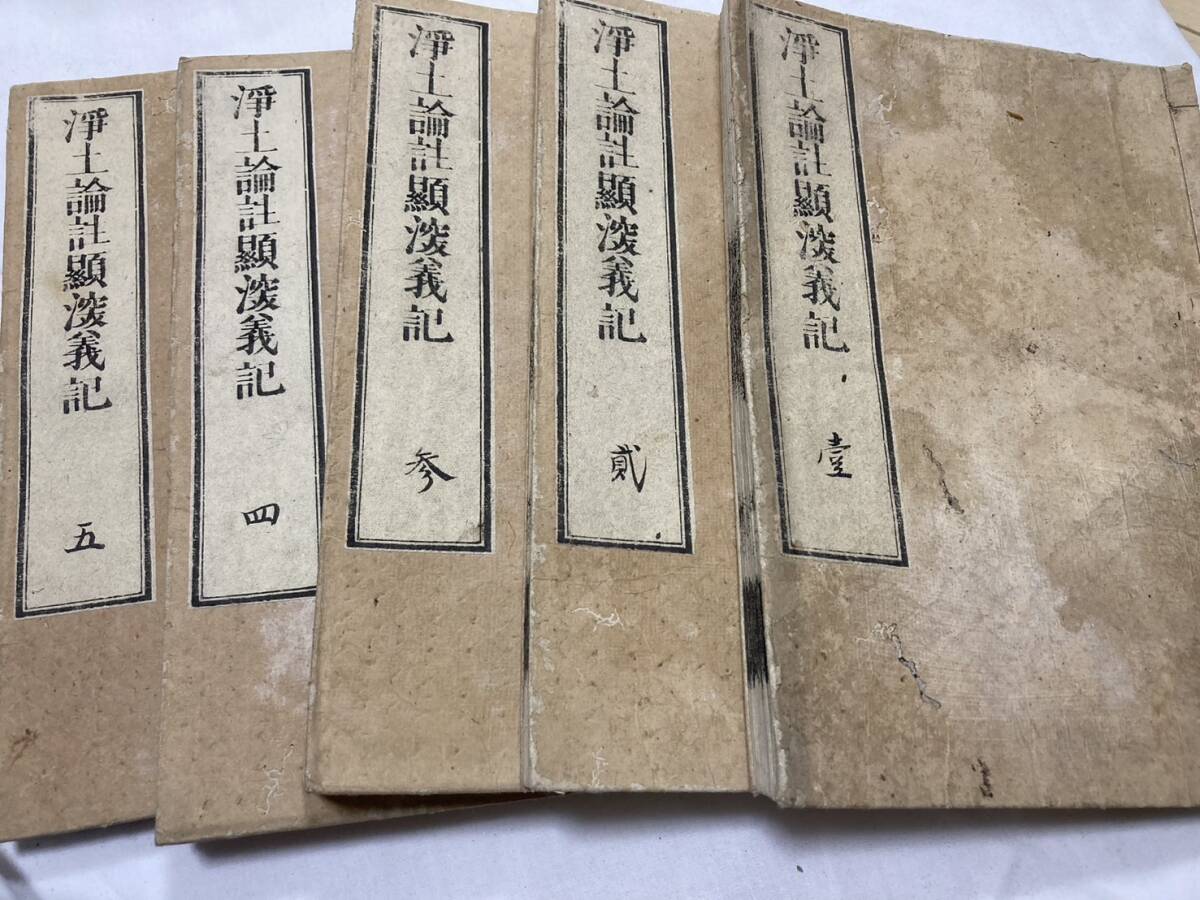 淨土論註顯深義記 壹
淨土論註顯深義記 貳
淨土論註顯深義記 参
淨土論註顯深義記 四
淨土論註顯深義記 五